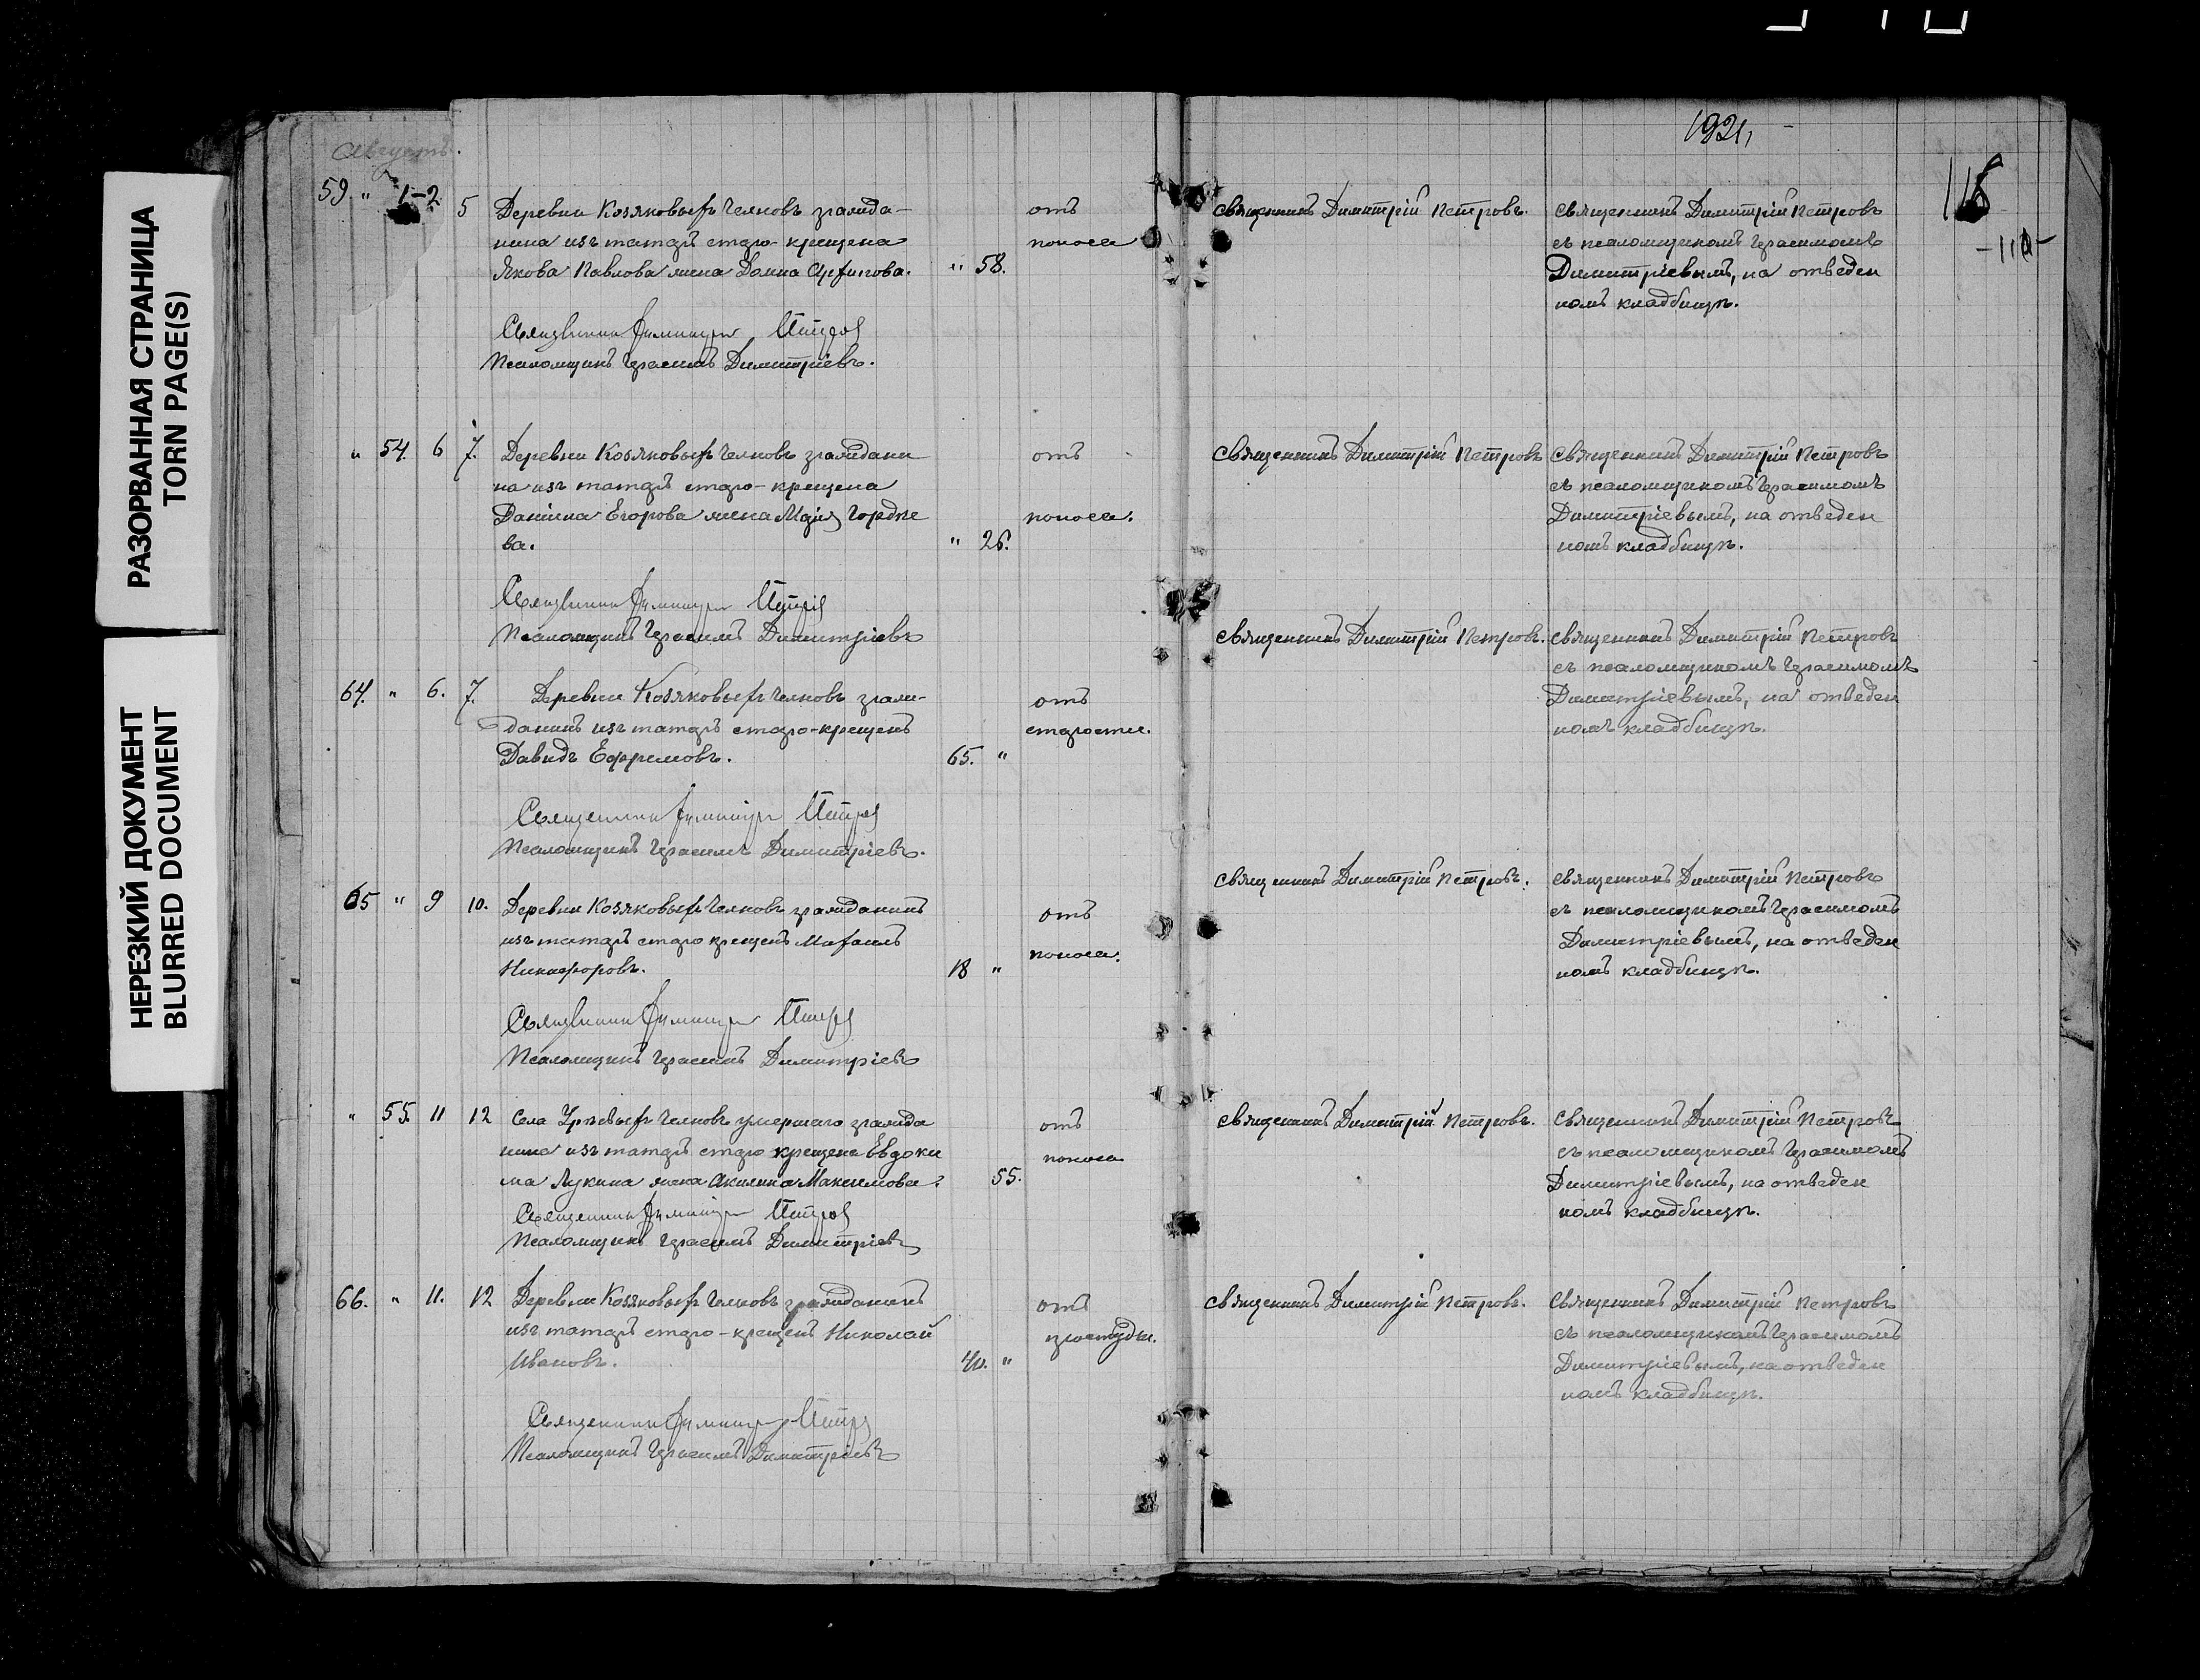 РАЗОРВАННАЯ СТРАНИЦА
TORN PAGE(S)
НЕРЕЗКИЙ ДОКУМЕНТ
BLURRED DOCUMENT
1921,
Августъ.
59. " 1-2. 5 Деревни Козяковыхъ Челновъ гражда-
нина изъ татаръ старо-крещена
отъ
поноса
Якова Павлова жена Домна " 58.
Священникъ Димитрій Петровъ
Псаломщикъ Герасимъ Димитріевъ.
Священникъ Димитрій Петровъ.
Священникъ Димитрій Петровъ
съ псаломщикомъ Герасимомъ
Димитріевымъ, на отведен
номъ кладбищѣ.
" 54. 6 7. Деревни Козяковыхъ Челновъ граждани
на изъ татаръ старо-крещена
Даніила Егорова жена Марія Гордѣе
ва. " 26.
отъ
поноса.
Священникъ Димитрій Петровъ
Псаломщикъ Герасимъ Димитріевъ
Священникъ Димитрій Петровъ
Священникъ Димитрій Петровъ
съ псаломщикомъ Герасимомъ
Димитріевымъ, на отведен
номъ кладбищѣ.
64. " 6. 7. Деревни Козяковыхъ Челновъ граж-
данинъ изъ татаръ старо-крещенъ
Давидъ Ефремовъ. 65. "
отъ
старости.
Священникъ Димитрій Петровъ
Псаломщикъ Герасимъ Димитріевъ.
Священникъ Димитрій Петровъ.
Священникъ Димитрій Петровъ
съ псаломщикомъ Герасимомъ
Димитріевымъ, на отведен
номъ кладбищѣ.
65 " 9 10. Деревни Козяковыхъ Челновъ гражданинъ
изъ татаръ старо крещенъ Михаилъ
Никифоровъ. 18 "
отъ
поноса.
Священникъ Димитрій Петровъ
Псаломщикъ Герасимъ Димитріевъ
Священникъ Димитрій Петровъ.
Священникъ Димитрій Петровъ
съ псаломщикомъ Герасимомъ
Димитріевымъ, на отведен
номъ кладбищѣ.
" 55. 11 12 Села Челновъ умершаго гражда
нина изъ татаръ старо крещена Евдоки
ма Лукина жена Акилина Максимова. 55.
отъ
поноса
Священникъ Димитрій Петровъ
Псаломщикъ Герасимъ Димитріевъ
Священникъ Димитрій Петровъ.
Священникъ Димитрій Петровъ
съ псаломщикомъ Герасимомъ
Димитріевымъ, на отведен
номъ кладбищѣ.
66. " 11. 12 Деревни Козяковыхъ Челновъ гражданинъ
изъ татаръ старо-крещенъ Николай
Ивановъ. 40. "
отъ
простуды.
Священникъ Димитрій Петровъ
Псаломщикъ Герасимъ Димитріевъ
Священникъ Димитрій Петровъ.
Священникъ Димитрій Петровъ
съ псаломщикомъ Герасимомъ
Димитріевымъ, на отведен
номъ кладбищѣ.